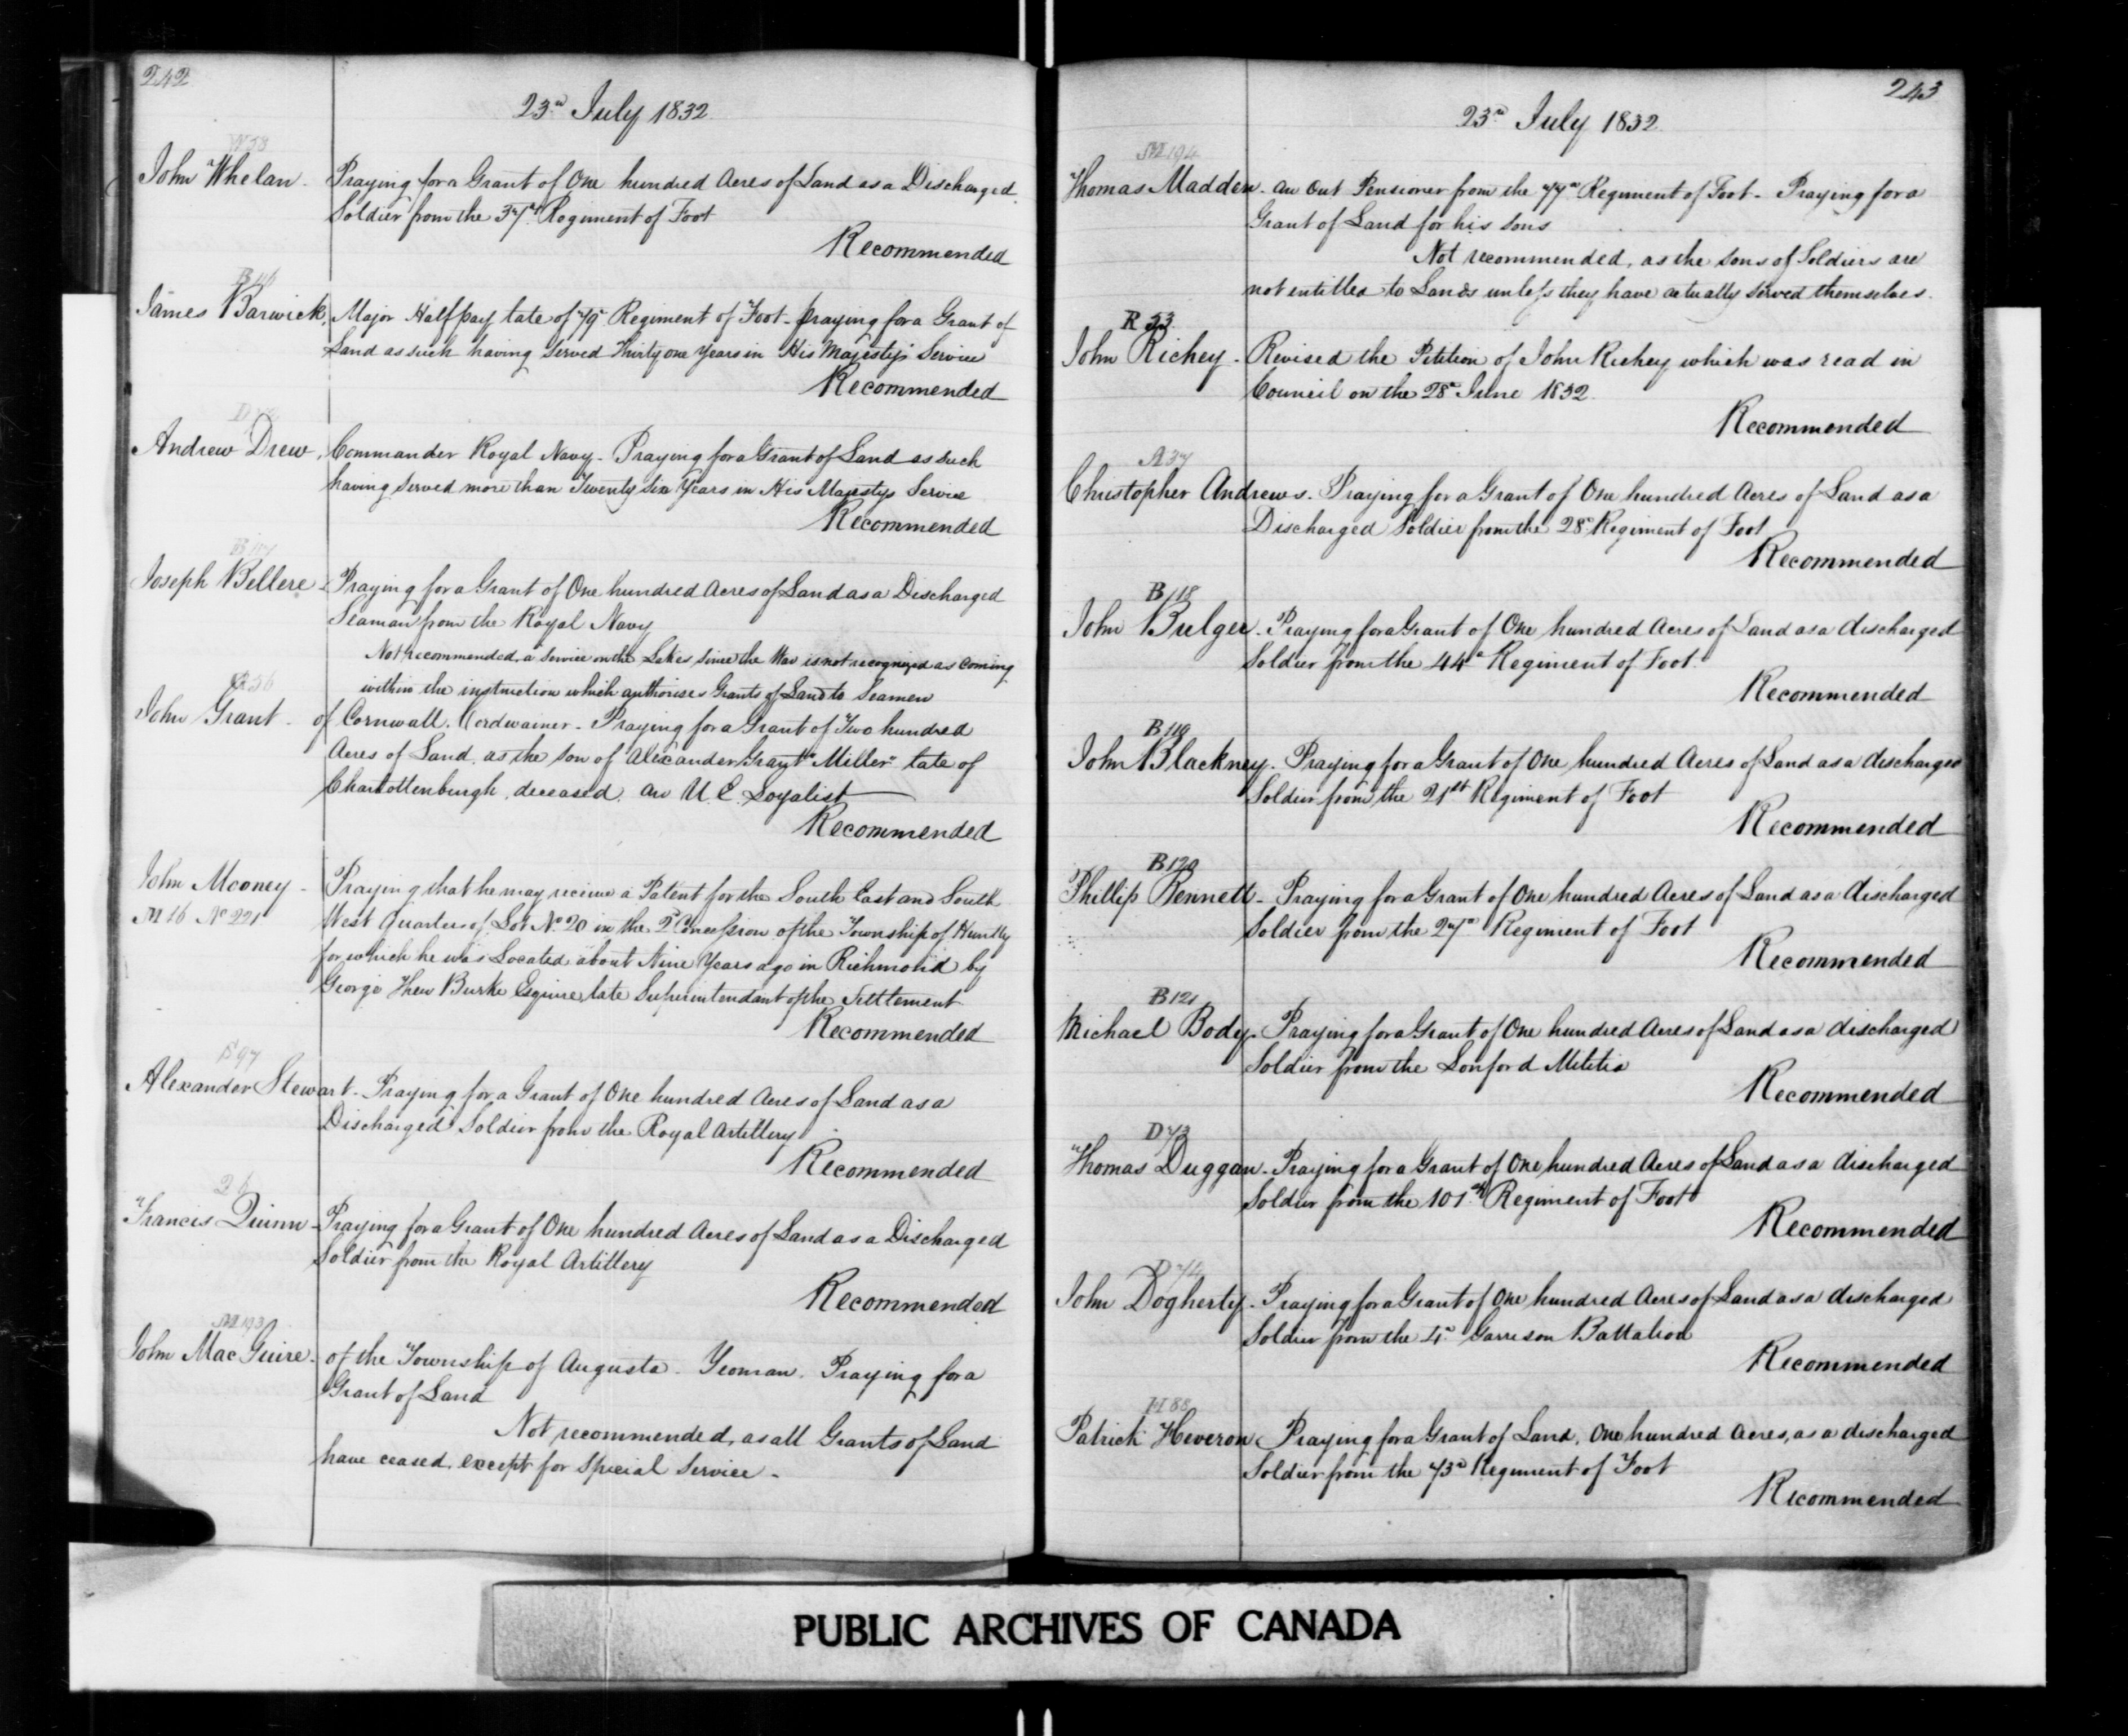 242
23d July 1832
W58
John Whelan. Praying for a Grant of One hundred Acres of Land as a Discharged
Soldier from the 37th Regiment of Foot
Recommended
B116
James Barwick, Major Half pay late of 79th Regiment of Foot - praying for a Grant of
Land as such having served Thirty one Years in His Majestys Service
Recommended
Andrew Drew, Commander Royal Navy - Praying for a Grant of Land as such
having served more than Twenty six Years in His Majestys Service
Recommended
B117
Joseph Bellere - Praying for a Grant of One hundred Acres of Land as a Discharged
Seaman from the Royal Navy
Not recommended, a service on the Lakes since the War is not recognized as coming
within the instruction which authorises Grants of Land to Seamen
John Grant - of Cornwall. Cordwainer - Praying for a Grant of Two hundred
Acres of Land, as the son of Alexander Grant "Miller" late of
Charlottenburgh, deceased, an U.E. Loyalist
Recommended
John Mooney - Praying that he may receive a Patent for the South East and South
M 16 No 221 West Quarters of Lot No 20 in the 2d Concession of the Township of Huntly
for which he was Located about Nine Years ago in Richmond by
George Thew Burke Esquire, late Superintendant of the Settlement
Recommended
S97
Alexander Stewart - Praying for a Grant of One hundred Acres of Land as a
Discharged Soldier from the Royal Artillery
Recommended
Francis Quinn - Praying for a Grant of One hundred Acres of Land as a Discharged
Soldier from the Royal Artillery
Recommended
M193
John MacGuire - of the Township of Augusta - Yeoman. Praying for a
Grant of Land
Not recommended, as all Grants of Land
have ceased, except for Special Service -
243
23d July 1832
M194
Thomas Madden - an Out Pensioner from the 77th Regiment of Foot - Praying for a
Grant of Land for his sons
Not recommended, as the sons of Soldiers are
not entitled to Lands unless they have actually served themselves.
R 53
John Richey - Revised the Petition of John Richey which was read in
Council on the 28th June 1832.
Recommended
A37
Christopher Andrews. Praying for a Grant of One hundred Acres of Land as a
Discharged Soldier from the 28th Regiment of Foot
Recommended
B118
John Bulger - Praying for a Grant of One hundred Acres of Land as a discharged
Soldier from the 44th Regiment of Foot.
Recommended
B119
John Blackney - Praying for a Grant of One hundred Acres of Land as a discharged
Soldier from the 21st Regiment of Foot
Recommended
B120
Phillip Bennett - Praying for a Grant of One hundred Acres of Land as a discharged
Soldier from the 27th Regiment of Foot
Recommended
B121
Michael Body - Praying for a Grant of One hundred Acres of Land as a discharged
Soldier from the Lonford Militia
Recommended
D73
Thomas Duggan - Praying for a Grant of One hundred Acres of Land as a discharged
Soldier from the 101st Regiment of Foot
Recommended
D74
John Dogherty - Praying for a Grant of One hundred Acres of Land as a discharged
Soldier from the 4th Garrison Battalion
Recommended
H88
Patrick Heveron Praying for a Grant of Land, One hundred Acres, as a discharged
Soldier from the 73d Regiment of Foot
Recommended
PUBLIC ARCHIVES OF CANADA